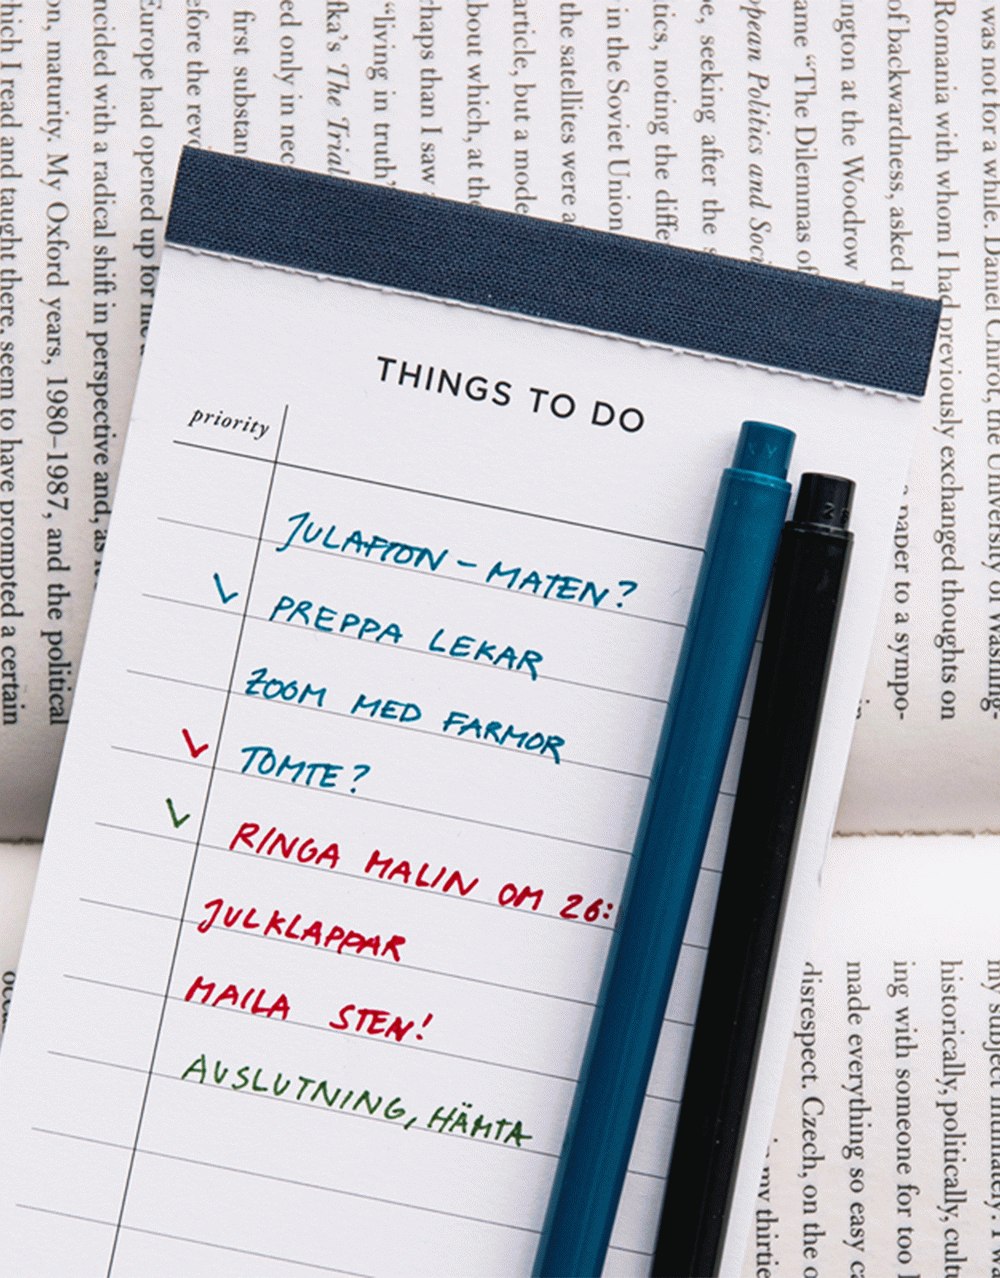 THINGS TO DO
priority
JULAFTON - MATEN?
PREPPA LEKAR
ZOOM MED FARMOR
TOMTE?
RINGA MALIN OM 26:
JULKLAPPAR
MAILA STEN!
AVSLUTNING, HÄMTA
was not for a whole. Daniel Chirot, the University of Washing-
Romania with whom I had previously exchanged thoughts on
of backwardness, asked
paper to a sympo-
ington at the Woodrow
ame “The Dilemmas of
opean Politics and Soci
be, seeking after the
tics, noting the diffe
in the Soviet Union
the satellites were a
article, but a mode
bout which, at the
rhaps than I saw
“living in truth,
fka's The Trial
ed only in nec
first substan
efore the rev
Europe had opened up for me
ncided with a radical shift in perspective and, as
on, maturity. My Oxford years, 1980–1987, and the political
hich I read and taught there, seem to have prompted a certain
my subject
historically, politically, cult
ing with someone for too
made everything so easy
disrespect. Czech, on the o
my thirtie